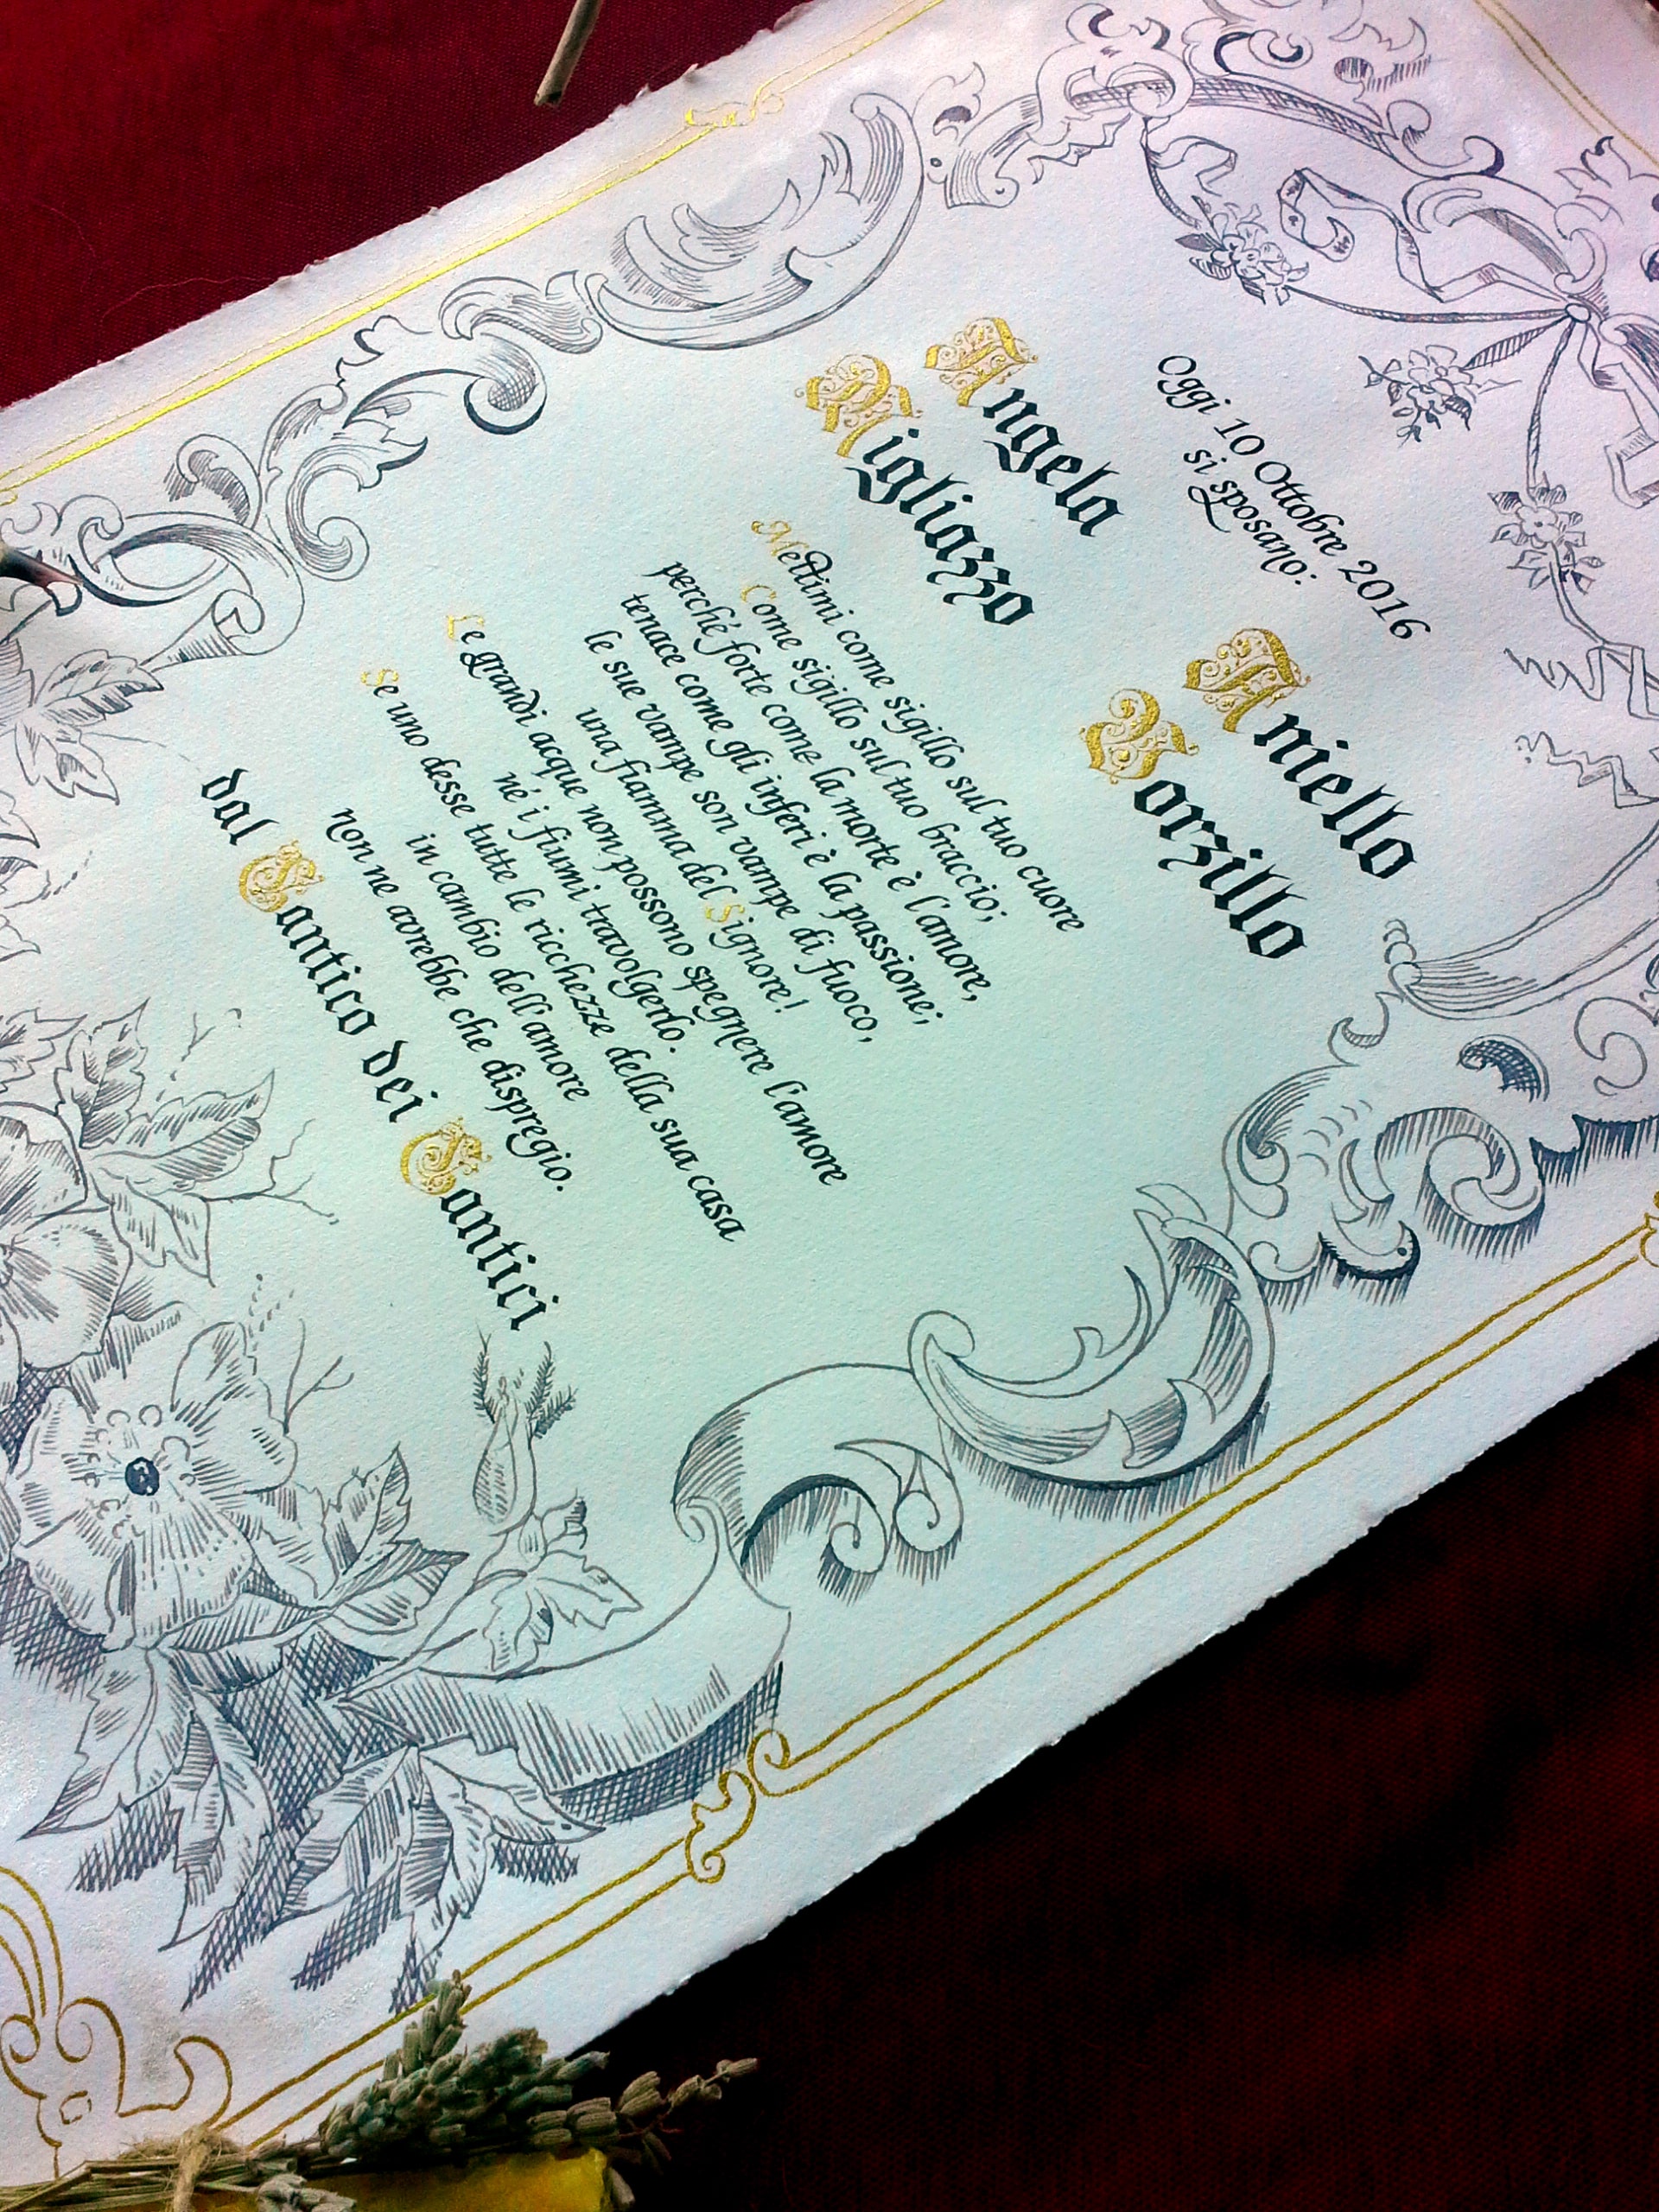 Oggi 10 Ottobre 2016
si sposano:
Angela Aniello
Migliazzo Borzillo
Mettimi come sigillo sul tuo cuore
Come sigillo sul tuo braccio;
perché forte come la morte è l'amore,
tenace come gli inferi è la passione;
le sue vampe son vampe di fuoco,
una fiamma del Signore!
Le grandi acque non possono spegnere l'amore
né i fiumi travolgerlo.
Se uno desse tutte le ricchezze della sua casa
in cambio dell'amore
non ne avrebbe che dispregio.
dal Cantico dei Cantici